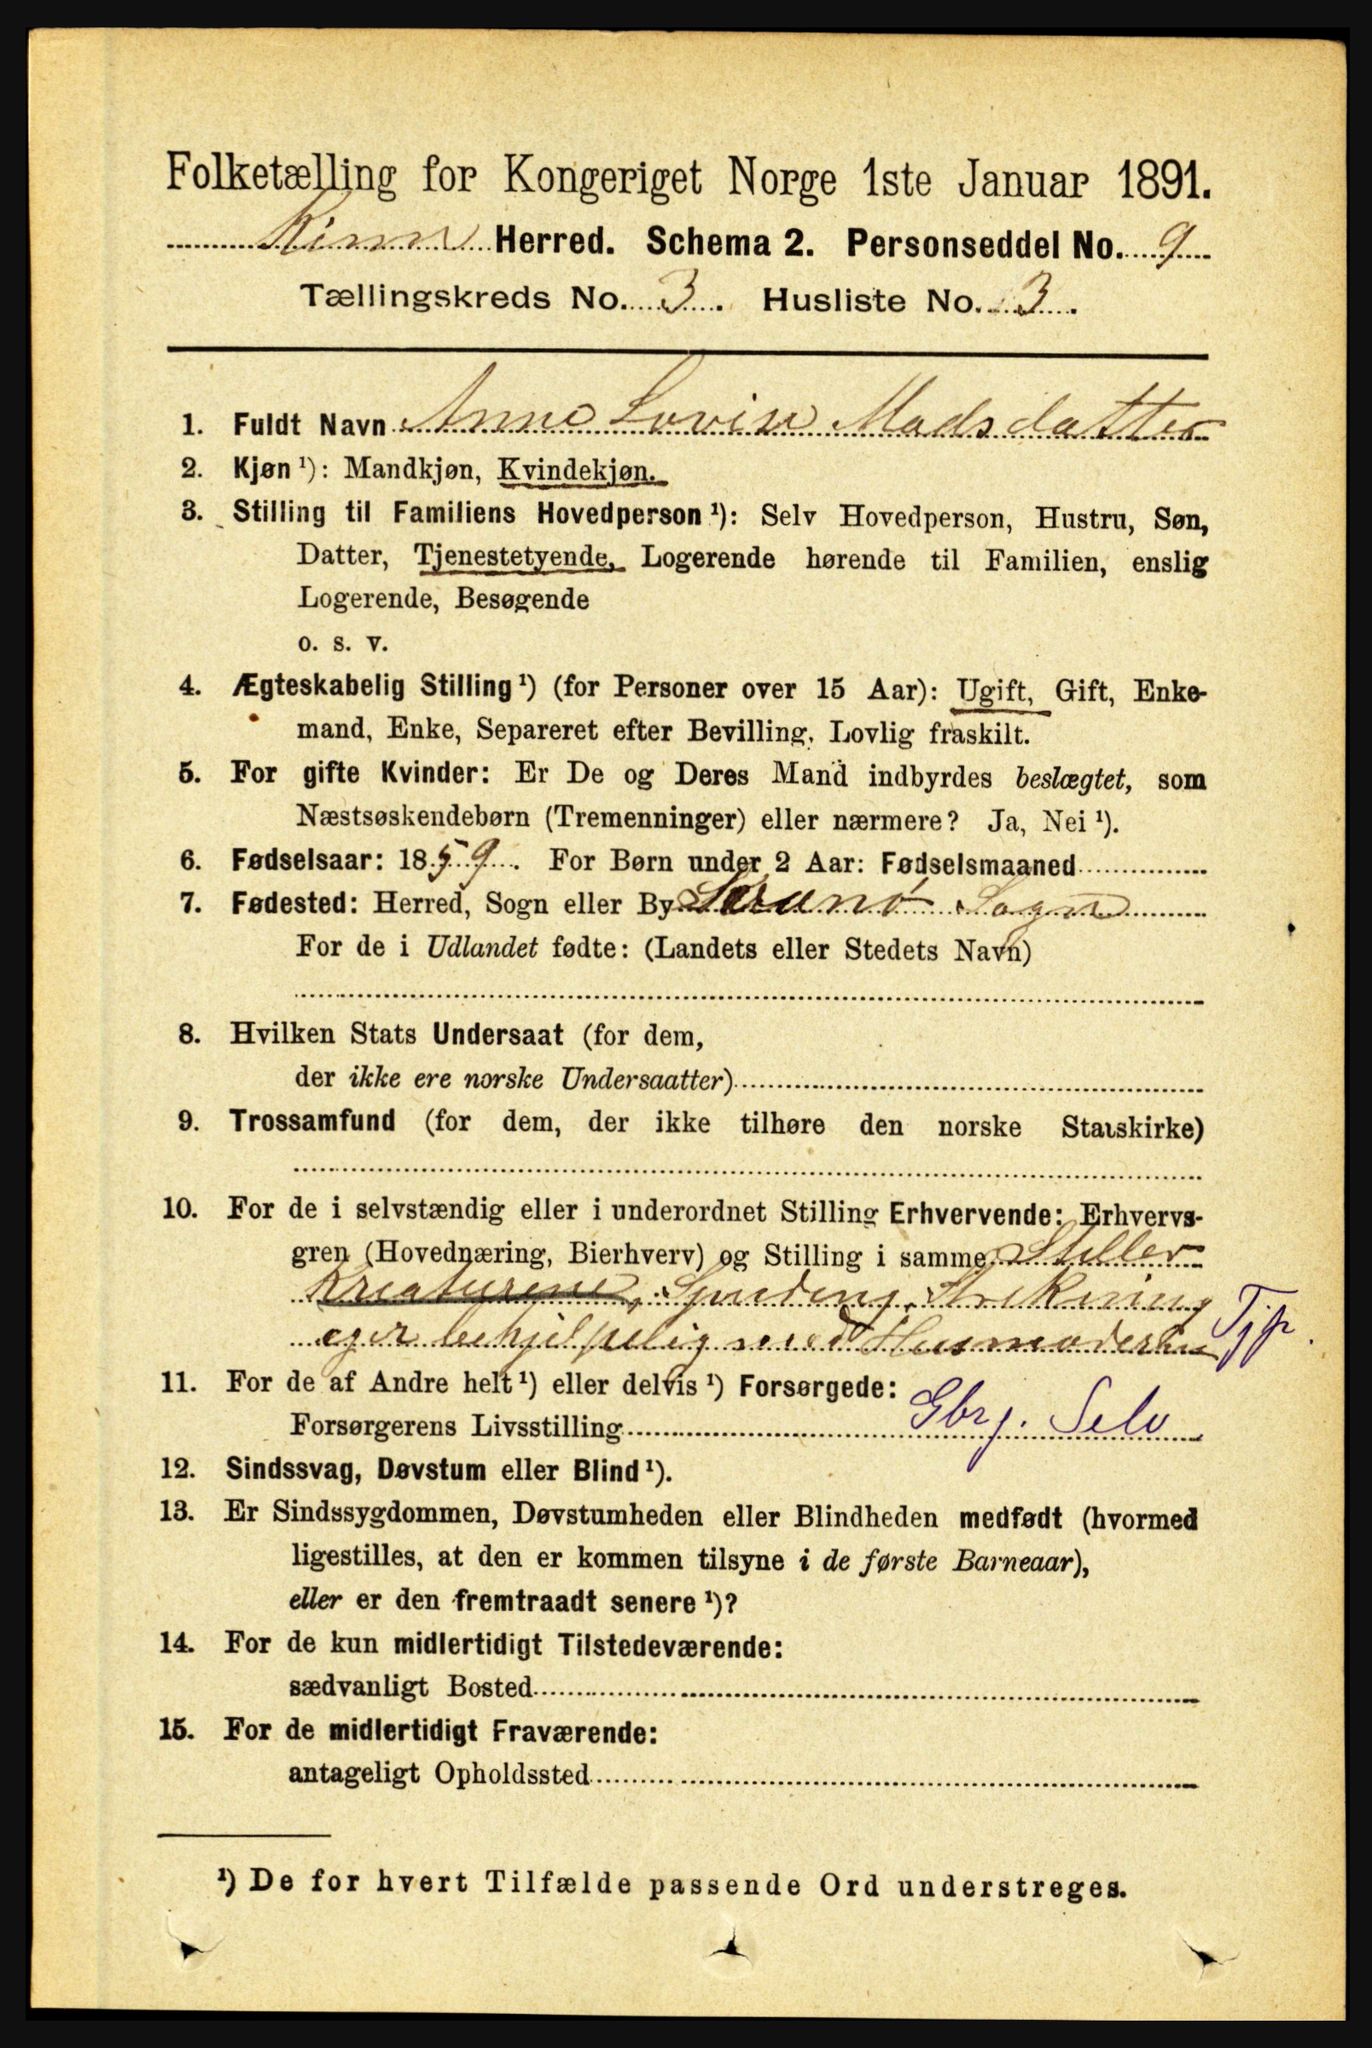 Folketælling for Kongeriget Norge 1ste Januar 1891.
Kinn Herred. Schema 2. Personseddel No. 9
Tællingskreds No. 3. Husliste No. 3.
1. Fuldt Navn Anne Lovise Madsdatter
2. Kjøn ¹): Mandkjøn, Kvindekjøn.
3. Stilling til Familiens Hovedperson ¹): Selv Hovedperson, Hustru, Søn,
Datter, Tjenestetyende, Logerende hørende til Familien, enslig
Logerende, Besøgende
o. s. v.
4. Ægteskabelig Stilling ¹) (for Personer over 15 Aar): Ugift, Gift, Enke-
mand, Enke, Separeret efter Bevilling, Lovlig fraskilt.
5. For gifte Kvinder: Er De og Deres Mand indbyrdes beslægtet, som
Næstsøskendebørn (Tremenninger) eller nærmere? Ja, Nei ¹).
6. Fødselsaar: 1859. For Børn under 2 Aar: Fødselsmaaned
7. Fødested: Herred, Sogn eller By Sogn
For de i Udlandet fødte: (Landets eller Stedets Navn)
8. Hvilken Stats Undersaat (for dem,
der ikke ere norske Undersaatter)
9. Trossamfund (for dem, der ikke tilhøre den norske Statskirke)
10. For de i selvstændig eller i underordnet Stilling Erhvervende: Erhvervs-
gren (Hovednæring, Bierhverv) og Stilling i samme Steller
Kreaturene, Spinding, Strikning
Tjp.
eger behjelpelig med Husmoderen
11. For de af Andre helt ¹) eller delvis ¹) Forsørgede:
Forsørgerens Livsstilling Gbrj. Selv
12. Sindssvag, Døvstum eller Blind ¹).
13. Er Sindssygdommen, Døvstumheden eller Blindheden medfødt (hvormed
ligestilles, at den er kommen tilsyne i de første Barneaar),
eller er den fremtraadt senere ¹)?
14. For de kun midlertidigt Tilstedeværende:
sædvanligt Bosted
15. For de midlertidigt Fraværende:
antageligt Opholdssted
¹) De for hvert Tilfælde passende Ord understreges.